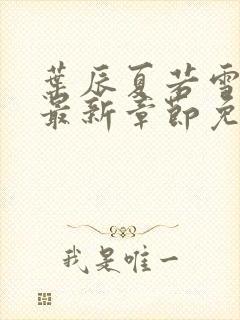 葉辰夏若雪
最新章節免
我是唯一